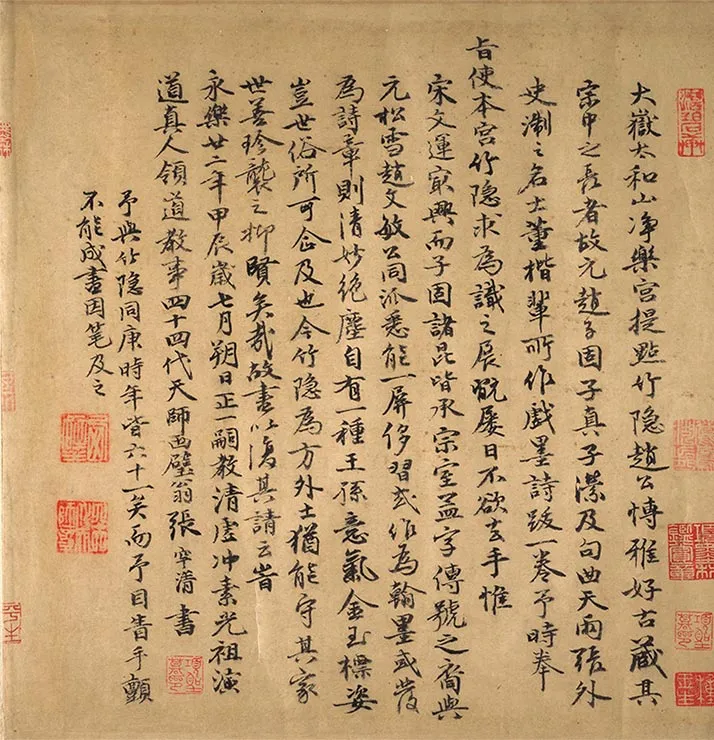 大嶽太和山净樂宮提點竹隐趙公博雅好古藏其
宗中之長者故元趙子固子真子濚及句曲天雨張外
史淛之名士董楷輩所作戲墨詩跋一卷予時奉
旨使本宮竹隐求為識之展翫屡日不欲去手惟
宋文運㝡興而子固諸昆皆承宗室孟字傳號之裔與
元松雪趙文敏公同派悉能一屏侈習或作為翰墨或發
為詩章則清妙絕塵自有一種王孫意氣金玉標姿
豈世俗所可企及也今竹隐為方外士猶能守其家
世善珍襲之抑賢矣哉故書以復其請云旹
永樂廿二年甲辰歲七月朔日正一嗣教清虛冲素光祖演
道真人領道教事四十四代天師西壁翁張宇清書
予與竹隐同庚時年皆六十一矣而予目眚手顫
不能成書因笔及之